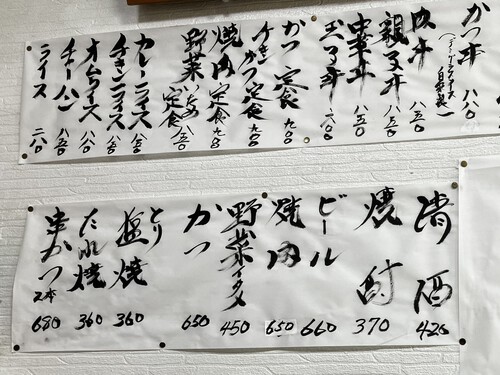 かつ丼 八〇〇
肉丼 八五〇
親子丼 八五〇
中華丼 八五〇
玉子丼 六〇〇
かつ定食 九〇〇
チキンかつ定食 九〇〇
焼肉定食 九〇〇
野菜いため定食 八五〇
カレーライス 八五〇
チキンライス 八〇〇
オムライス 八〇〇
チャーハン 八五〇
ライス 二八〇
清酒 420
焼酎 370
ビール 660
焼肉 650
野菜イタメ 450
かつ 650
とり塩焼 360
たれ焼 360
串かつ 2本 680